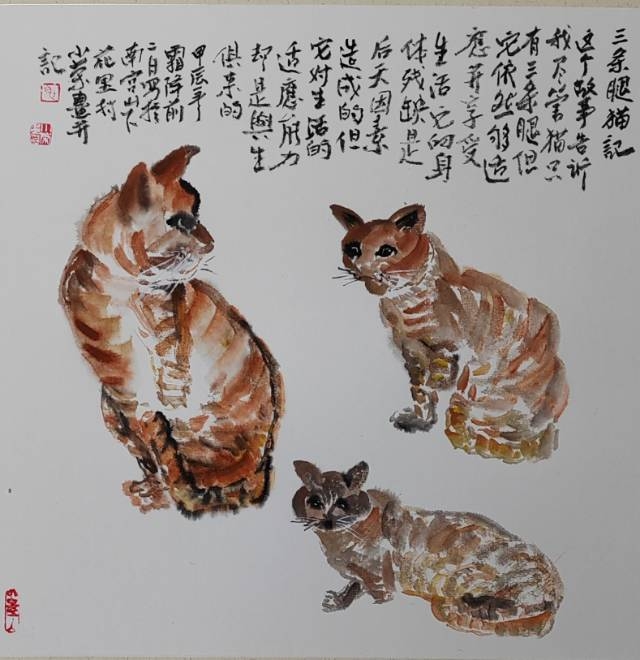 三条腿猫記
这个故事告訴
我尽管猫只
有三条腿但
它依然够适
應并享受
生活它的身
体残缺是
后天因素
造成的但
它对生活的
适應能力
却是與生
俱来的
甲辰年
霜降前
二日写於
南宫山下
花里村
小蒙畫并
記